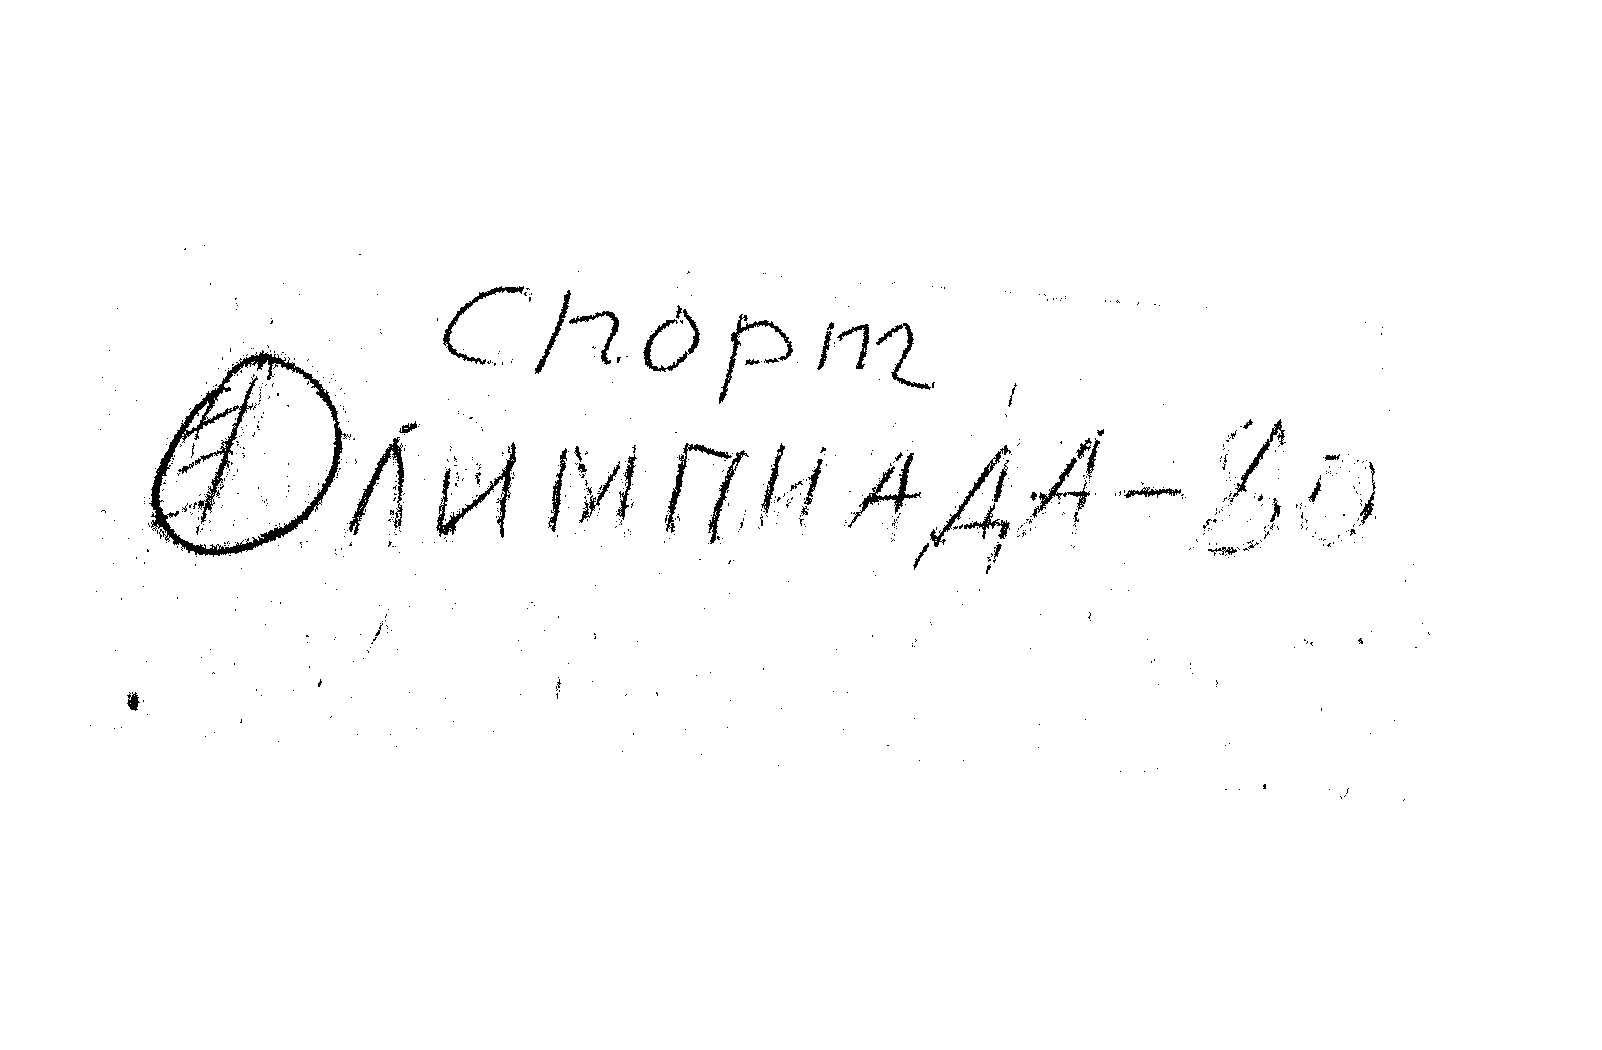 Спорт
ОЛИМПИАДА-80